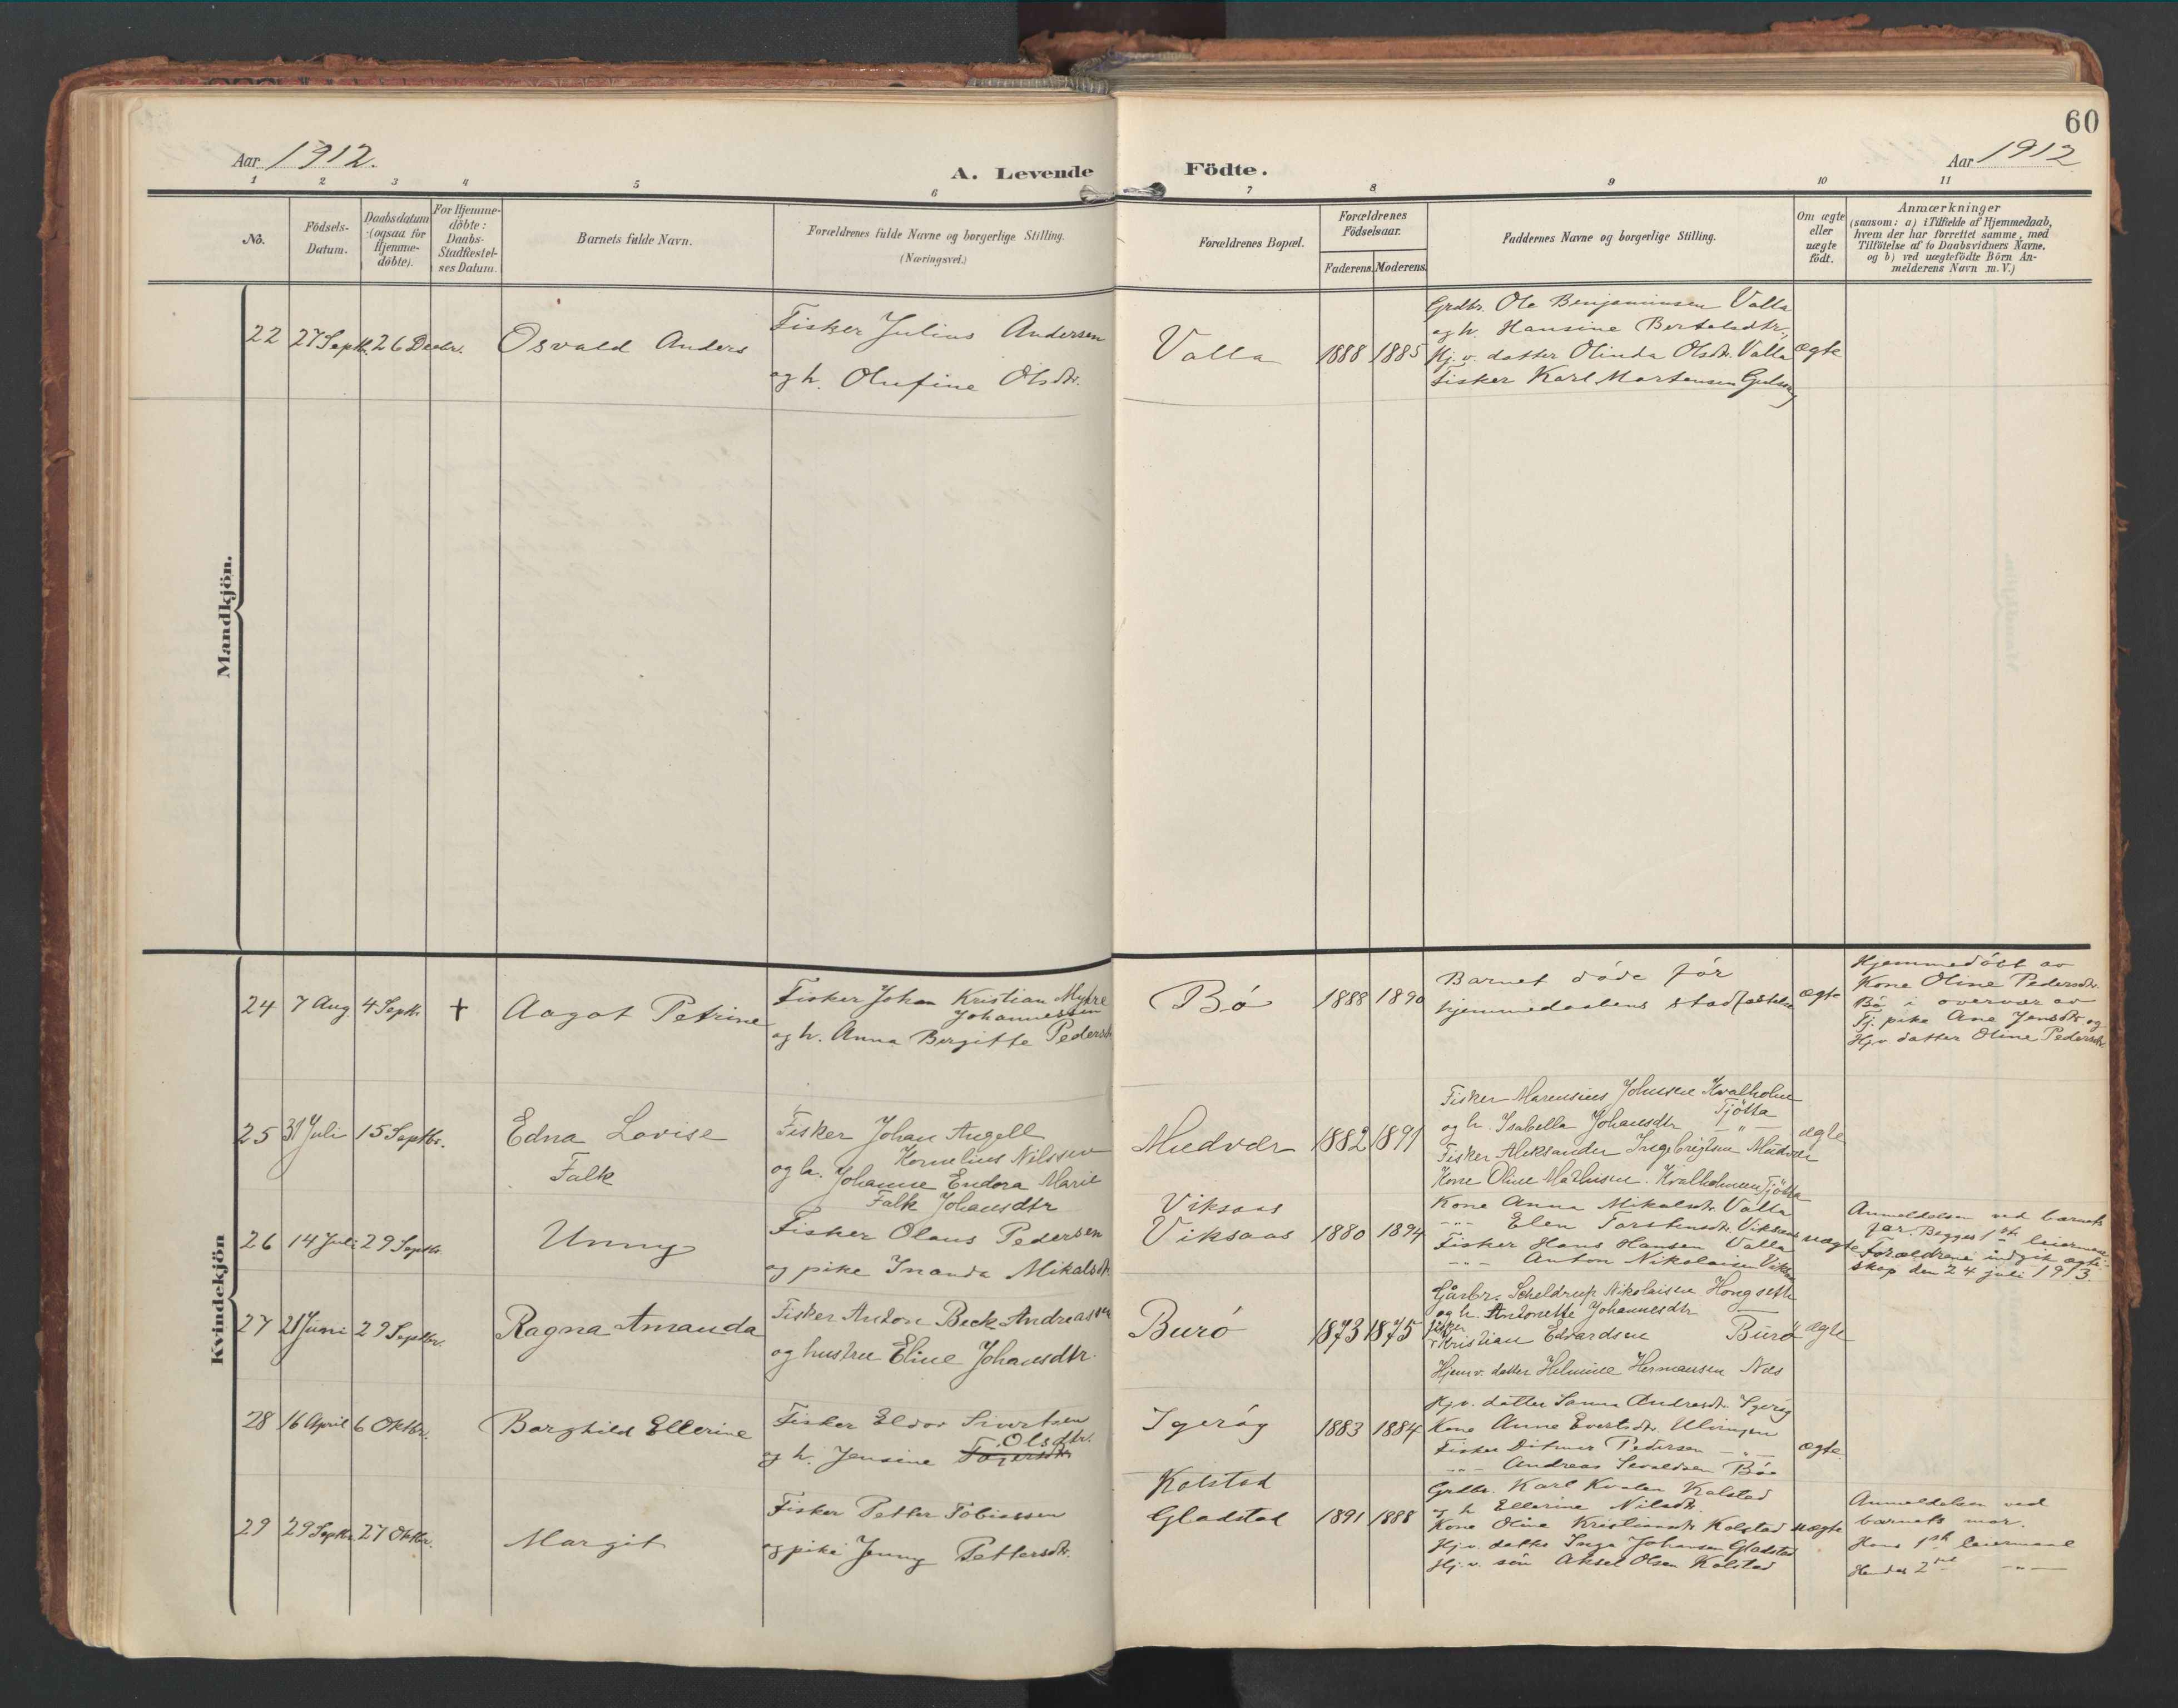 60
Aar 1912.
A. Levende Födte.
Aar 1912
1 2 3 4 5 6 7 8 9 10 11
No.
Födsels-
Datum.
Daabsdatum
(ogsaa for
Hjemme-
döbte).
For Hjemme-
döbte:
Daabs-
Stadfestel-
ses Datum.
Barnets fulde Navn.
Forældrenes fulde Navne og borgerlige Stilling.
(Næringsvei.)
Forældrenes Bopæl.
Forældrenes
Födselsaar.
Faderens. Moderens.
Faddernes Navne og borgerlige Stilling.
Om ægte
eller
uægte
födt.
Anmærkninger
(saasom: a) i Tilfælde af Hjemmedaab,
hvem der har forrettet samme, med
Tilföielse af to Daabsvidners Navne,
og b) ved uægtefödte Börn An-
melderens Navn m.V.)
Mandkjön.
22 27 Septb. 26 Decbr. Osvald Anders
Fisker Julius Andersen
og h. Olufine Olsdtr.
Valla 1888 1885
Grdbr. Ole Benjaminsen Valla
og h. Hansine Bertelsdtr.
Hj. v. datter Olinda Olsdtr. Valla
Fisker Karl Mortensen
ægte
Kvindekjön
24 7 Aug. 4 Septb. † Aagot Petrine
Fisker Johan Kristian Myhre
Johannessen
og h. Anna Birgitte Pedersdtr.
Bö 1888 1890
Barnet döde för
hjemmedaabens stadfæstelse
ægte
Hjemmedöbt av
Kone Oline Pedersdtr.
Bö i overvær av
Tj. pike Ane Jensdtr. og
Hj. v. datter Oline Pedersdtr.
25 31 Juli 15 Septbr. Edna Lovise
Falk
Fisker Johan Angell
Kornelius Nilssen
og h. Johanne Endora Marie
Falk Johansdtr
Mudvær 1882 1891
Fisker Marensius Johnsen Kvalholm
Tjötta
og h. Isabella Johansdtr — " —
Fisker Aleksander Ingebrigtsen Mudvær
Kone Oline Mathisen. Kvalholmen Tjötta
ægte
26 14 Juli 29 Septbr. Unny
Fisker Olaus Pedersen
og pike Inanda Mikalsdtr.
Viksaas
Viksaas 1880 1894
Kone Anna Mikalsdtr. Valla
-"- Elen Torstensdtr. Viksaas
Fisker Hans Hansen Valla
-"- Anton Nikolaisen Viksaas
uægte
Anmeldelsen ved barnets
far. Begges 1ste leiermaal
Forældrene indgik ægte-
skap den 24 juli 1913.
27 21 Juni 29 Septbr. Ragna Amanda
Fisker Anton Beck Andreassen
og hustru Eline Johansdtr.
Burö 1873 1875
Gårbr. Scheldrup Nikolaisen Hongseth
og h. Antonette Johannesdtr —
fisker
Kristian Edvardsen Burö
Hjemv. datter Helmine Hermansen Nös
ægte
28 16 April 6 Oktbr. Borghild Ellerine
Fisker Eldor Sivertsen
Olsdtr.
og h. Jensine
Igeröy 1883 1884
Hj. v. datter Sanna Andresdtr. Igeröy
Kone Anne Evertsdtr. Ulvingen
Fisker Ditmar Pedersen — " —
-"- Andreas Sevaldsen Böe
ægte
29 29 Septbr. 27 Oktbr. Margit
Fisker Petter Tobiassen
og pike Jenny Pettersdtr.
Kolstad
Gladstad 1891 1888
Grdbr. Karl Kvalen Kolstad
og h Ellerine Nilsdtr.
Kone Oline Kristiansdtr. Kolstad
Hj. v. datter Inga Johansen Gladstad
Hj. v. sön Aksel Olsen Kolstad
uægte
Anmeldelsen ved
barnets mor.
Hans 1ste leiermaal
Hendes 2det — " —